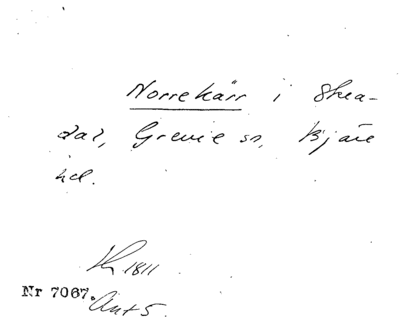 Norrekärr i Skea-
dal, Grevie sn, Bjäre
hd.
Lh 1811
Nr 7067.
Ant 5.